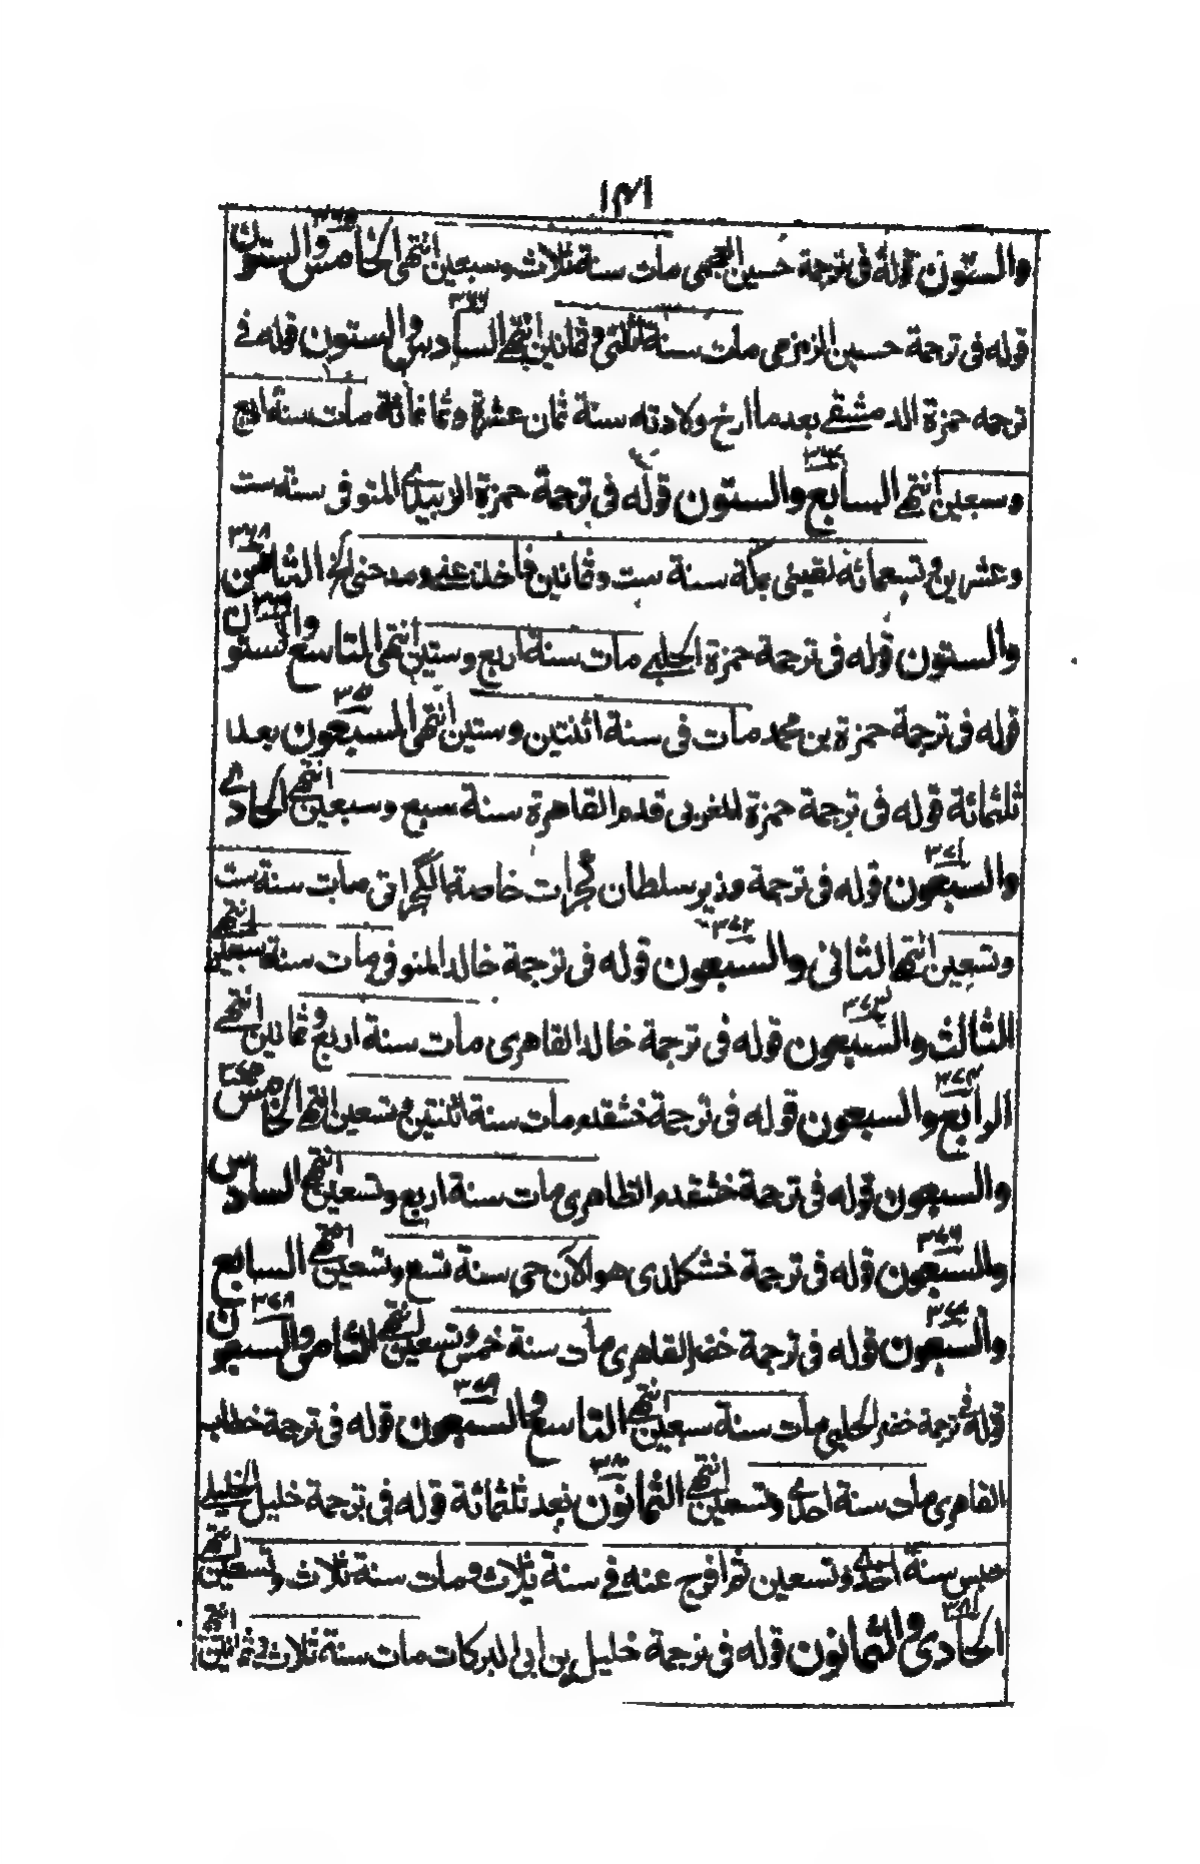 ١٣١
والستون قوله فى ترجمة حسين العجمى مات سنة ثلاث وسبعين انتهى الخامس والستون ٣٦٥
قوله فى ترجمة حسين الزمزمى مات سنة اثنتى وثمانين انتهى السادس والستون قوله فى ٣٦٦
ترجمه حمزة الدمشقى بعد ما ارخ ولادته سنة ثمان عشرة وثمانمائة مات سنة اربع
وسبعين انتهى السابع والستون قوله فى ترجمة حمزة الزبيدى المتوفى سنة ست ٣٦٧
وعشرين وتسعمائة لقينى بمكة سنة ست وثمانين فاخذ عنى ومدحنى الخ الثامن ٣٦٨
والستون قوله فى ترجمة حمزة الحلبى مات سنة اربع وستين انتهى التاسع والستون ٣٦٩
قوله فى ترجمة حمزة بن محمد مات فى سنة اثنتين وستين انتهى السبعون بعد ٣٧٠
ثلثمائة قوله فى ترجمة حمزة المغربى قدم القاهرة سنة سبع وسبعين انتهى الحادى
والسبعون قوله فى ترجمة وزير سلطان كجرات خاصة الكجراتى مات سنة ست ٣٧١
وتسعين انتهى الثانى والسبعون قوله فى ترجمة خالد المنوفى مات سنة سبعين انتهى ٣٧٢
الثالث والسبعون قوله فى ترجمة خالد القاهرى مات سنة اربع وثمانين انتهى ٣٧٣
الرابع والسبعون قوله فى ترجمة خشقدم مات سنة اثنتين وتسعين انتهى الخامس ٣٧٤ ٣٧٥
والسبعون قوله فى ترجمة خشقدم الظاهرى مات سنة اربع وتسعين انتهى السادس
والسبعون قوله فى ترجمة خشكلدى هو الآن حى سنة تسع وتسعين انتهى السابع ٣٧٦
والسبعون قوله فى ترجمة خضر القاهرى مات سنة خمس وتسعين انتهى الثامن والسبعون ٣٧٧ ٣٧٨
قوله فى ترجمة خضر الحلبى مات سنة سبعين انتهى التاسع والسبعون قوله فى ترجمة خطاب ٣٧٩
القاهرى مات سنة احدى وتسعين انتهى الثمانون بعد ثلثمائة قوله فى ترجمة خليل الخليلى ٣٨٠
حبس سنة احدى وتسعين ثم افرج عنه فى سنة ثلاث ومات سنة ثلاث وتسعين انتهى
الحادى والثمانون قوله فى ترجمة خليل بن ابى البركات مات سنة ثلاث وثمانين انتهى ٣٨١